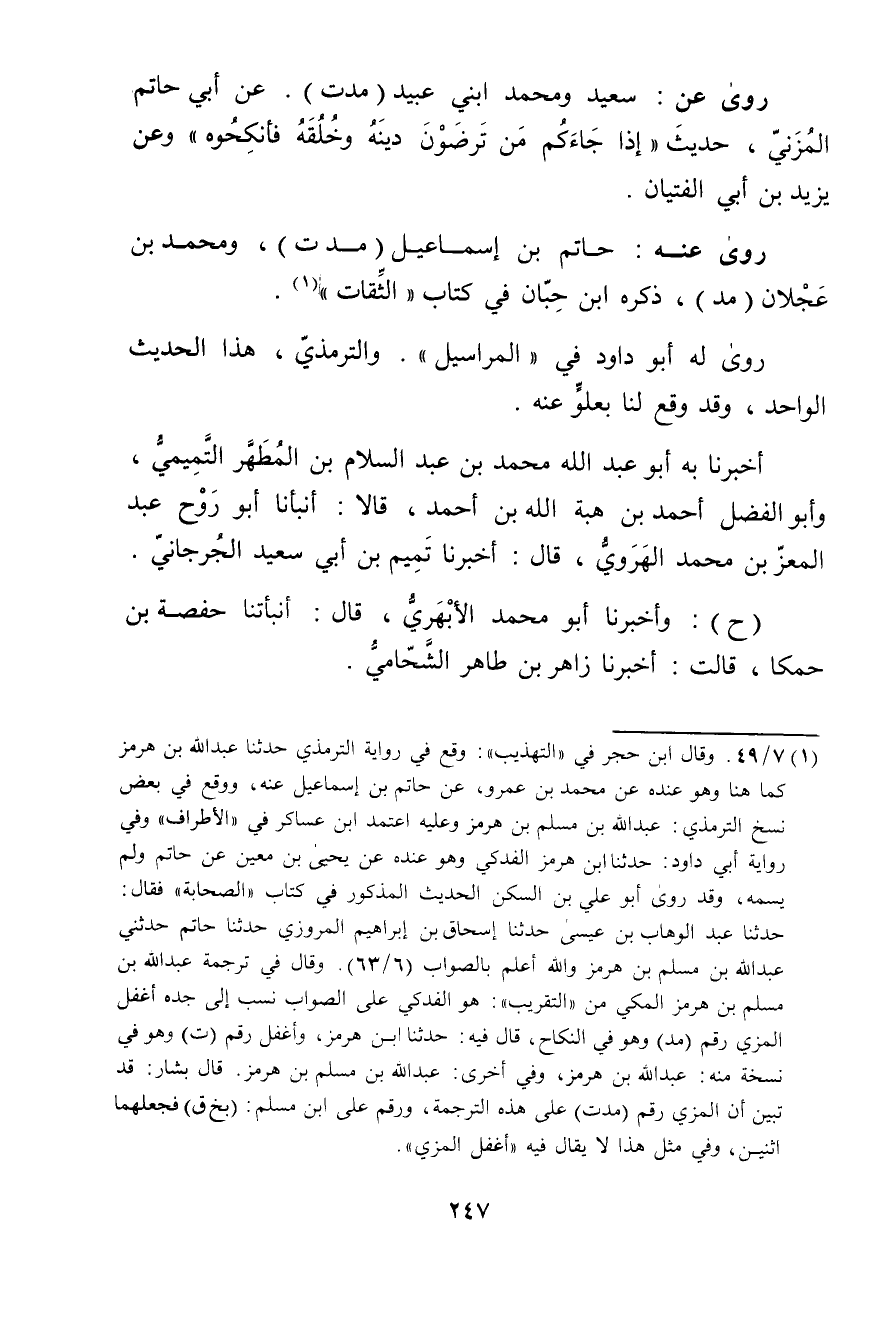 روىٰ عن : سعيد ومحمد ابني عبيد ( مدت ) . عن أبي حاتم
المُزَنيّ ، حديثَ « إذا جَاءَكُم مَن تَرضَوْنَ دينَهُ وخُلُقَهُ فأنكِحُوه » وعن
يزيد بن أبي الفتيان .
روىٰ عنــه : حــاتم بن إسمــاعيــل ( مــد ت ) ، ومحمــد بن
عَجْلان ( مد ) ، ذكره ابن حِبّان في كتاب « الثِّقات »(١) .
روىٰ له أبو داود في « المراسيل » . والترمذيّ ، هذا الحديث
الواحد ، وقد وقع لنا بعلوٍّ عنه .
أخبرنا به أبو عبد الله محمد بن عبد السلام بن المُطَهَّر التَّمِيميُّ ،
وأبو الفضل أحمد بن هبة الله بن أحمد ، قالا : أنبأنا أبو رَوْح عبد
المعزّ بن محمد الهَرَويُّ ، قال : أخبرنا تَمِيم بن أبي سعيد الجُرجانيّ .
( ح ) : وأخبرنا أبو محمد الأبْهَريُّ ، قال : أنبأتنا حفصـة بن
حمكا ، قالت : أخبرنا زاهر بن طاهر الشَّحّاميُّ .
(١) ٤٩/٧. وقال ابن حجر في «التهذيب»: وقع في رواية الترمذي حدثنا عبدالله بن هرمز
كما هنا وهو عنده عن محمد بن عمرو، عن حاتم بن إسماعيل عنه، ووقع في بعض
نسخ الترمذي: عبدالله بن مسلم بن هرمز وعليه اعتمد ابن عساكر في «الأطراف» وفي
رواية أبي داود: حدثنا ابن هرمز الفدكي وهو عنده عن يحيىٰ بن معين عن حاتم ولم
يسمه، وقد روىٰ أبو علي بن السكن الحديث المذكور في كتاب «الصحابة» فقال:
حدثنا عبد الوهاب بن عيسىٰ حدثنا إسحاق بن إبراهيم المروزي حدثنا حاتم حدثني
عبدالله بن مسلم بن هرمز والله أعلم بالصواب (٦٣/٦). وقال في ترجمة عبدالله بن
مسلم بن هرمز المكي من «التقريب»: هو الفدكي على الصواب نسب إلى جده أغفل
المزي رقم (مد) وهو في النكاح، قال فيه: حدثنا ابـن هرمز، وأغفل رقم (ت) وهو في
نسخة منه: عبدالله بن هرمز، وفي أخرى: عبدالله بن مسلم بن هرمز. قال بشار: قد
تبين أن المزي رقم (مدت) على هذه الترجمة، ورقم على ابن مسلم: (بخ ق) فجعلهما
اثنيـن، وفي مثل هذا لا يقال فيه «أغفل المزي».
٢٤٧